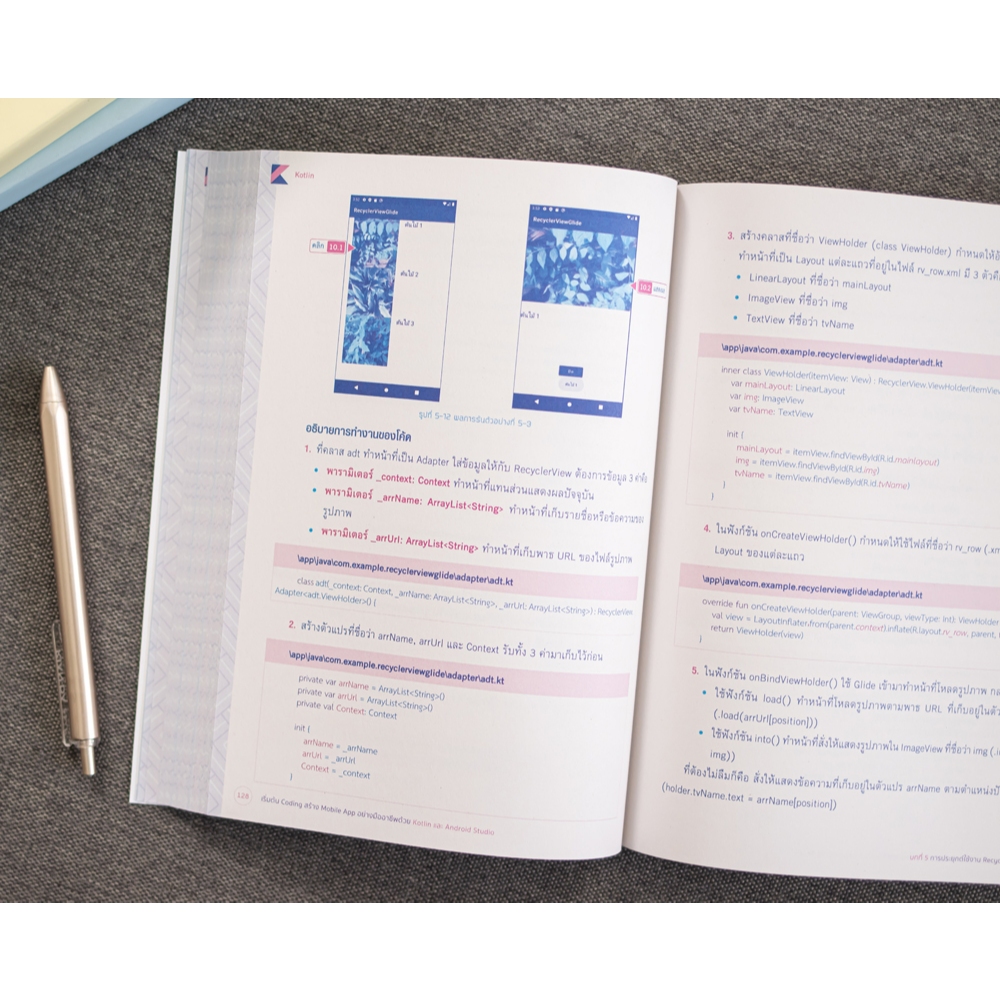 Kotlin
RecyclerViewGlide
ต้นไม้ 1
คลิก 10.1
ต้นไม้ 2
ต้นไม้ 3
RecyclerViewGlide
10.2
ต้นไม้ 1
รูปที่ 5-12 ผลการรันตัวอย่างที่ 5-3
อธิบายการทำงานของโค้ด
1. ที่คลาส adt ทำหน้าที่เป็น Adapter ใส่ข้อมูลให้กับ RecyclerView ต้องการข้อมูล 3 ค่าคือ
• พารามิเตอร์ _context: Context ทำหน้าที่แทนส่วนแสดงผลปัจจุบัน
• พารามิเตอร์ _arrName: ArrayList<String> ทำหน้าที่เก็บรายชื่อหรือข้อความของ
รูปภาพ
• พารามิเตอร์ _arrUrl: ArrayList<String> ทำหน้าที่เก็บพาธ URL ของไฟล์รูปภาพ
\app\java\com.example.recyclerviewglide\adapter\adt.kt
class adt(_context: Context, _arrName: ArrayList<String>, _arrUrl: ArrayList<String>) : RecyclerView.
Adapter<adt.ViewHolder>() {
2. สร้างตัวแปรที่ชื่อว่า arrName, arrUrl และ Context รับทั้ง 3 ค่ามาเก็บไว้ก่อน
\app\java\com.example.recyclerviewglide\adapter\adt.kt
private var arrName = ArrayList<String>()
private var arrUrl = ArrayList<String>()
private val Context: Context
init {
arrName = _arrName
arrUrl = _arrUrl
Context = _context
}
128 เริ่มต้น Coding สร้าง Mobile App อย่างมืออาชีพด้วย Kotlin และ Android Studio
3. สร้างคลาสที่ชื่อว่า ViewHolder (class ViewHolder) กำหนดให้
ทำหน้าที่เป็น Layout แต่ละแถวที่อยู่ในไฟล์ rv_row.xml มี 3 ตัวคือ
• LinearLayout ที่ชื่อว่า mainLayout
• ImageView ที่ชื่อว่า img
• TextView ที่ชื่อว่า tvName
\app\java\com.example.recyclerviewglide\adapter\adt.kt
inner class ViewHolder(itemView: View) : RecyclerView.ViewHolder(itemView
var mainLayout: LinearLayout
var img: ImageView
var tvName: TextView
init {
mainLayout = itemView.findViewById(R.id.mainlayout)
img = itemView.findViewById(R.id.img)
tvName = itemView.findViewById(R.id.tvName)
}
}
4. ในฟังก์ชัน onCreateViewHolder() กำหนดให้ใช้ไฟล์ที่ชื่อว่า rv_row (.xm
Layout ของแต่ละแถว
\app\java\com.example.recyclerviewglide\adapter\adt.kt
override fun onCreateViewHolder(parent: ViewGroup, viewType: Int): ViewHolder
val view = LayoutInflater.from(parent.context).inflate(R.layout.rv_row, parent,
return ViewHolder(view)
}
5. ในฟังก์ชัน onBindViewHolder() ใช้ Glide เข้ามาทำหน้าที่โหลดรูปภาพ
• ใช้ฟังก์ชัน load() ทำหน้าที่โหลดรูปภาพตามพาธ URL ที่เก็บอยู่ในตัว
(.load(arrUrl[position]))
• ใช้ฟังก์ชัน into() ทำหน้าที่สั่งให้แสดงรูปภาพใน ImageView ที่ชื่อว่า img
img))
ที่ต้องไม่ลืมก็คือ สั่งให้แสดงข้อความที่เก็บอยู่ในตัวแปร arrName ตามตำแหน่ง
(holder.tvName.text = arrName[position])
บทที่ 5 การประยุกต์ใช้งาน Recyc